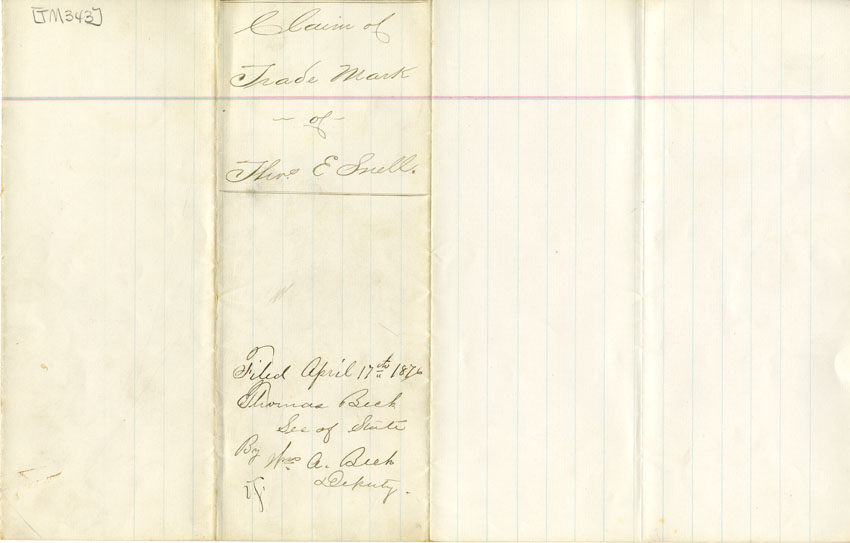 [TM343]
Claim of
Trade Mark
- of -
Thos E Snell.
Filed April 17th 1876
Thomas Beck
Sec of State
By Wm A. Beck
Deputy.